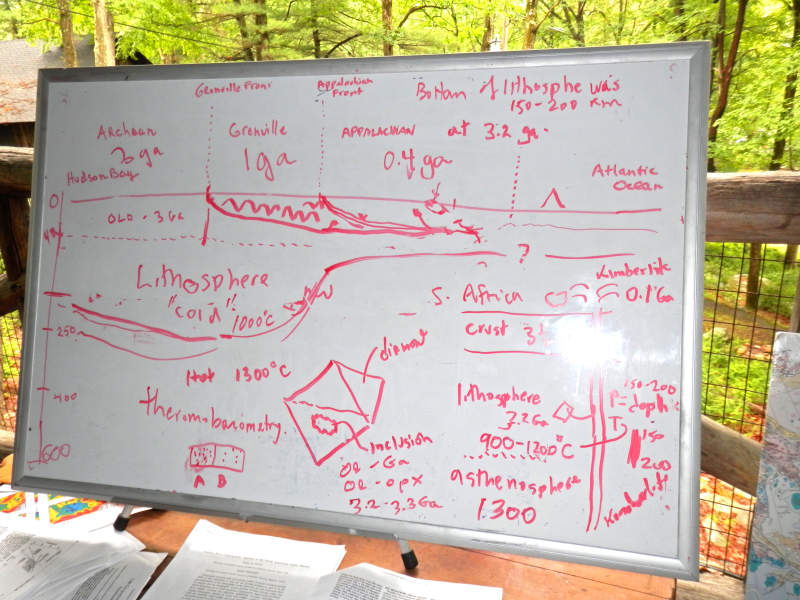 Grenville Front
Appalachian
Front
Bottom of lithosphe was
150-200 km
at 3.2 ga.
Archean
3 ga
Grenville
1 ga
APPALACHIAN
0.4 ga
Hudson Bay
Atlantic
Ocean
0
OLD - 3 Ga
Lithosphere
"cold"
1000°C
?
250
400
600
Hot 1300°C
theromobarometry.
A B
diamond
inclusion
Ol - Ga
Ol - opx
3.2 - 3.3 Ga
Kimberlite
S. Africa
0.1 Ga
crust
lithosphere
3.2 Ga
900-1200°C
asthenosphere
1300
150-200
P = depth
T
150
200